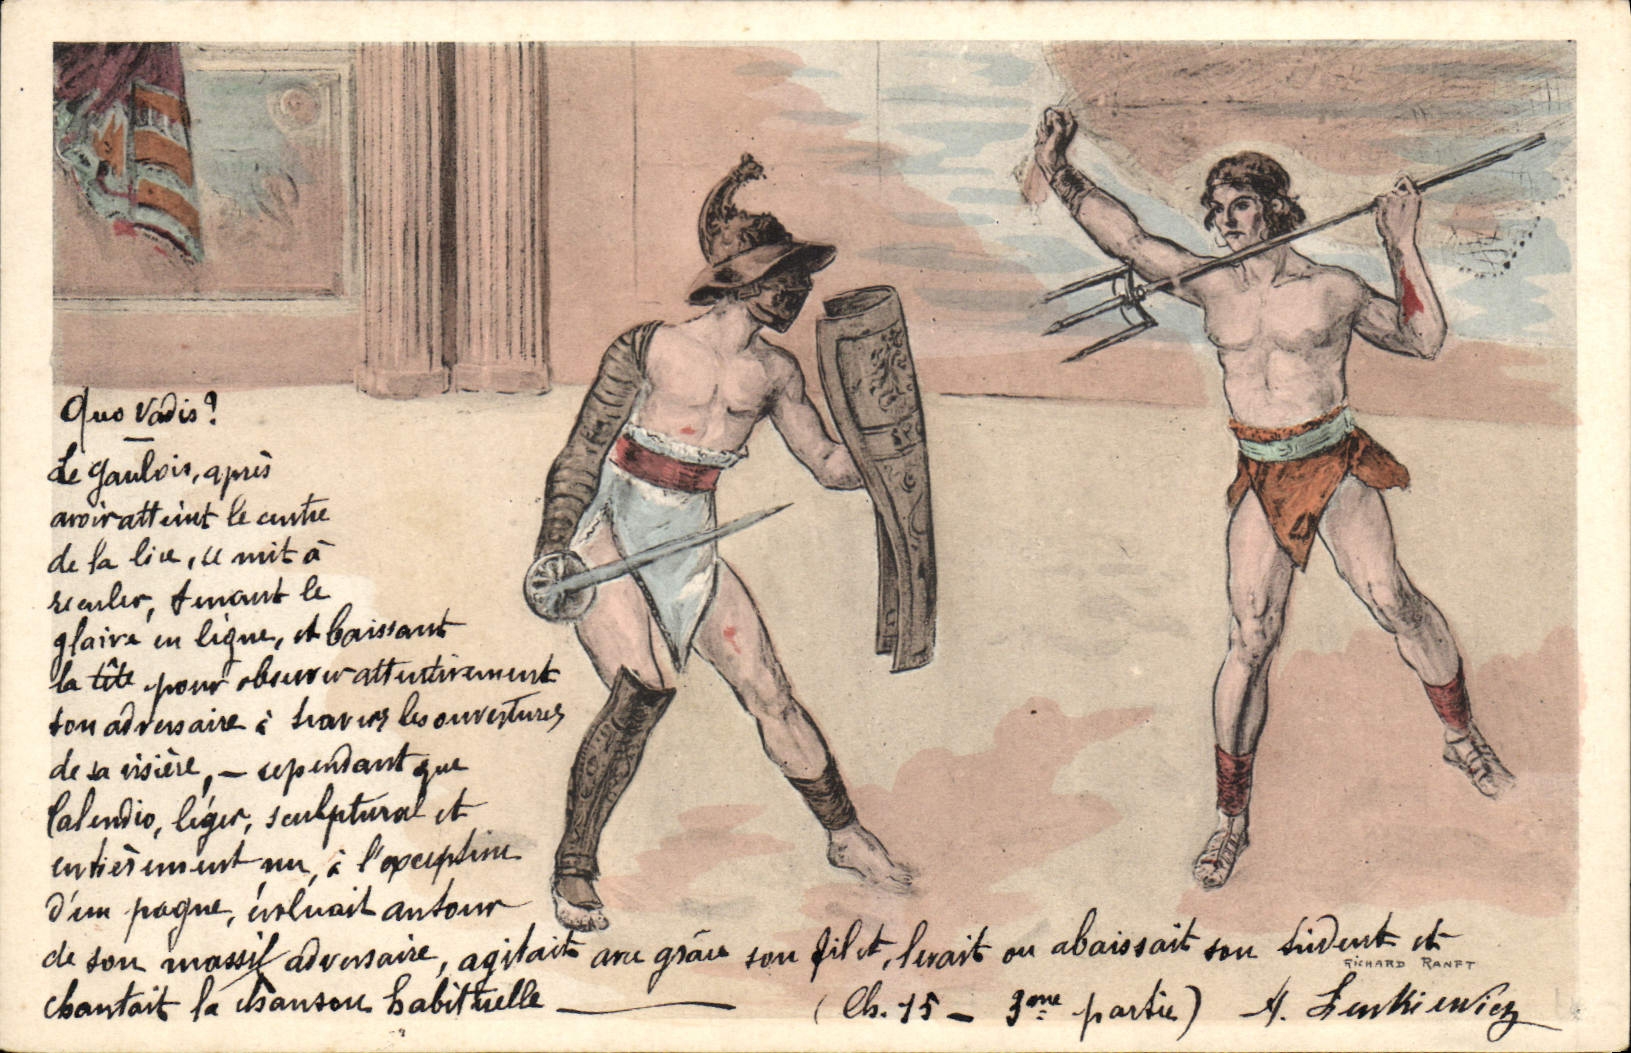 Quo Vadis?
Le Gaulois, après
avoir atteint le centre
de la lice, se mit à
reculer, tenant le
glaive en ligne, et baissant
la tête pour observer attentivement
son adversaire à travers les ouvertures
de sa visière, — cependant que
Calendio, léger, sculptural et
entièrement nu, à l'exception
d'un pagne, évoluait autour
de son massif adversaire, agitait avec grâce son filet, levait ou abaissait son trident et
RICHARD RANFT
chantait la chanson habituelle — (Ch. 15 — 3eme partie) H. Sienkiewicz